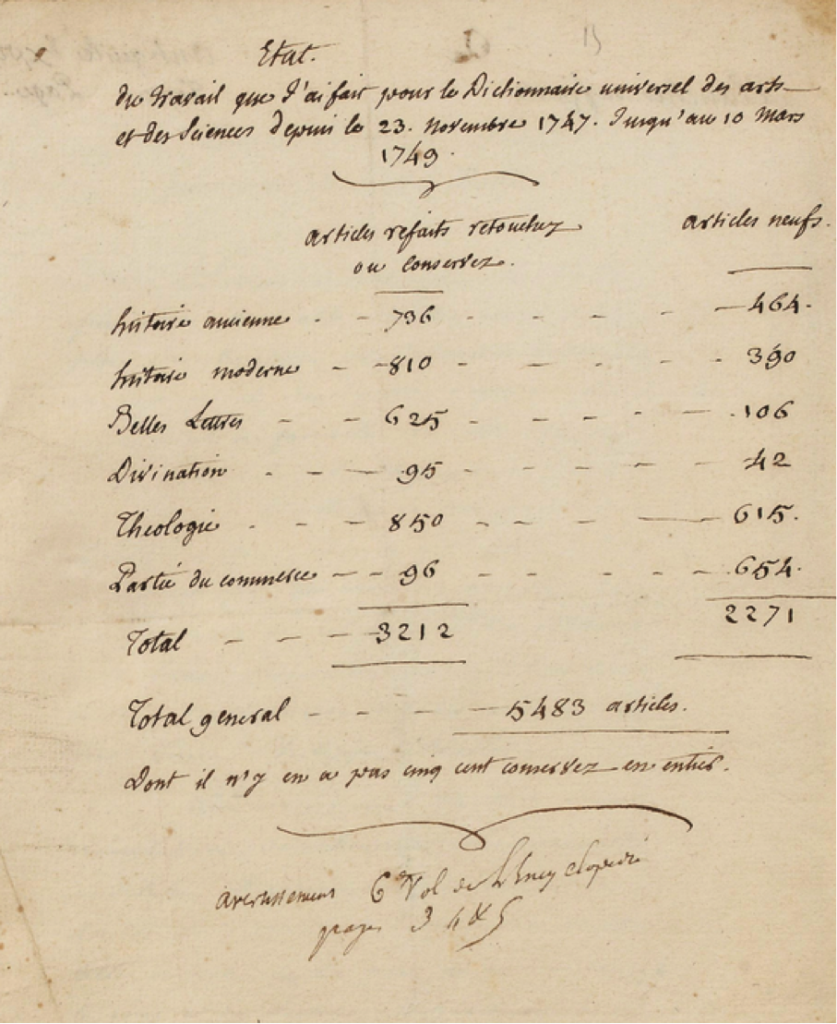 Etat.
du travail que J'ai fait pour le Dictionnaire universel des arts
et des Sciences depuis le 23. novembre 1747. Jusqu'au 10 mars
1749.
articles refaits retouchez articles neufs.
ou conservez.
histoire ancienne - - 736 - - - - 464.
histoire moderne - - 810 - - - - - 390
Belles Lettres - - 625 - - - - - 106
Divination - - - 95 - - - - - 42
Theologie - - - 850 - - - - 615.
Partie du commerce - - 96 - - - - - 654.
Total - - - 3212 2271
Total general - - - - 5483 articles.
Dont il n'y en a pas cinq cent conservez en entier.
avertissement 6e Vol de L'Encyclopedie
pages 3 4 & 5